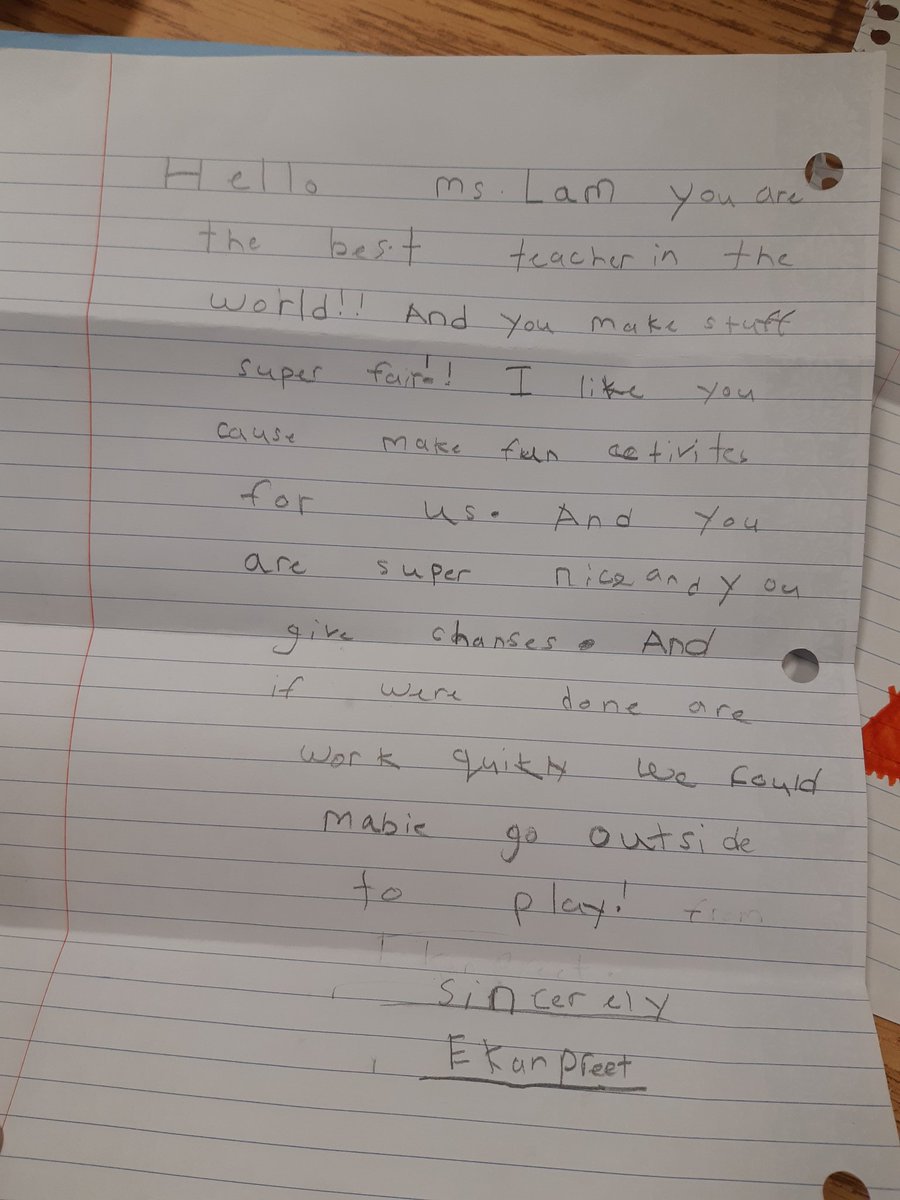 Hello ms. Lam you are
the best teacher in the
world!! And you make stuff
super fair!! I like you
cause make fun activites
for us. And you
are super nice and you
give chanses. And
if were done are
work quikly we could
mabie go outside
to play! from
Sincerely
Ekanpreet